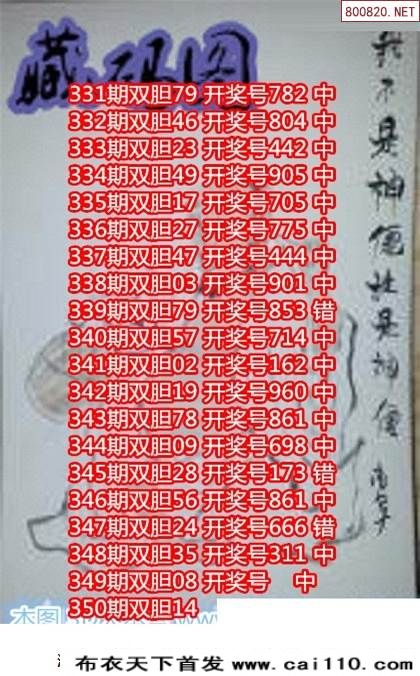 800820.NET
藏码图
331期双胆79 开奖号782 中
332期双胆46 开奖号804 中
333期双胆23 开奖号442 中
334期双胆49 开奖号905 中
335期双胆17 开奖号705 中
336期双胆27 开奖号775 中
337期双胆47 开奖号444 中
338期双胆03 开奖号901 中
339期双胆79 开奖号853 错
340期双胆57 开奖号714 中
341期双胆02 开奖号162 中
342期双胆19 开奖号960 中
343期双胆78 开奖号861 中
344期双胆09 开奖号698 中
345期双胆28 开奖号173 错
346期双胆56 开奖号861 中
347期双胆24 开奖号666 错
348期双胆35 开奖号311 中
349期双胆08 开奖号 中
350期双胆14
我不是神偓壮是神偓
布衣天下首发 www.cai110.com